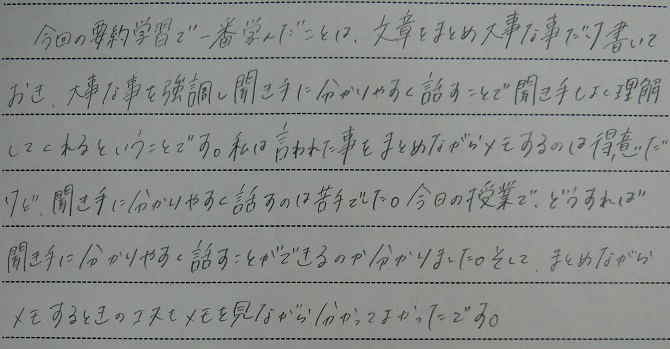 今回の要約学習で一番学んだことは、文章をまとめ大事な事だけ書いて
おき、大事な事を強調し聞き手に分かりやすく話すことで聞き手もよく理解
してくれるということです。私は言われた事をまとめながらメモするのは得意だ
けど、聞き手に分かりやすく話すのは苦手でした。今日の授業で、どうすれば
聞き手に分かりやすく話すことができるのか分かりました。そして、まとめながら
メモするときのコツもメモを見ながら分かってよかったです。